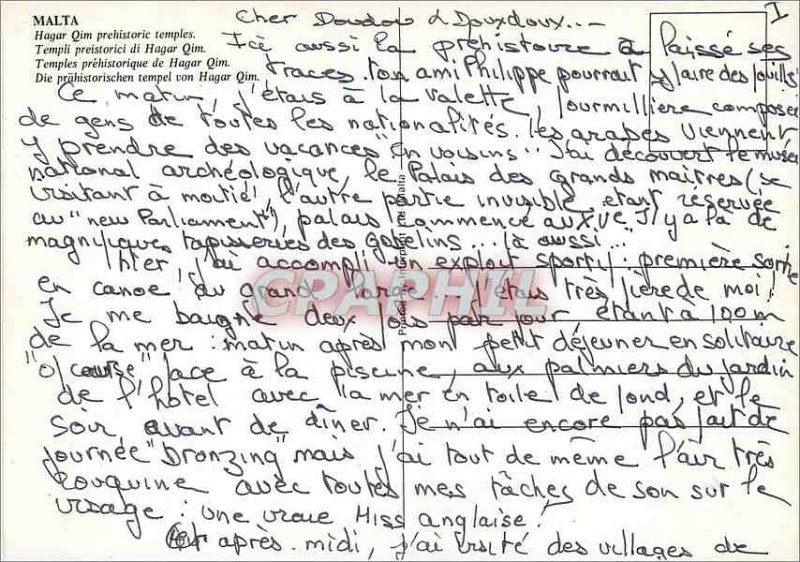 MALTA
Hagar Qim prehistoric temples.
Templi preistorici di Hagar Qim.
Temples préhistorique de Hagar Qim.
Die prühistorischen tempel von Hagar Qim.
I
Cher Doudou & Douxdoux...-
Ici aussi la préhistoire a laissé ses
traces. ton ami Philippe pourrait y faire des fouilles
Ce matin, j'étais à la Valette, fourmillière composée
de gens de toutes les nationalités. les arabes viennent
y prendre des vacances "en voisins". J'ai découvert le musée
national archéologique, le Palais des grands maîtres (se
visitant à moitié, l'autre partie invisible, étant réservée
au "new Parliament"), palais commencé au XVe. Il y a là de
magnifiques tapisseries des gobelins... là aussi...
hier, j'ai accompli un exploit sportif : première sortie
en canoe du grand large. J'étais très fière de moi!
Je me baigne deux fois par jour étant à 100 m
de la mer : matin après mon petit déjeuner en solitaire
"of course" face à la piscine, aux palmiers du jardin
de l'hôtel avec la mer en toile de fond, et le
soir avant de dîner. Je n'ai encore pas fait de
journée "bronzing" mais j'ai tout de même l'air très
rouquine avec toutes mes tâches de son sur le
visage : une vraie Miss anglaise!
Cet après-midi, j'ai visité des villages de
Printed
CPARHIL